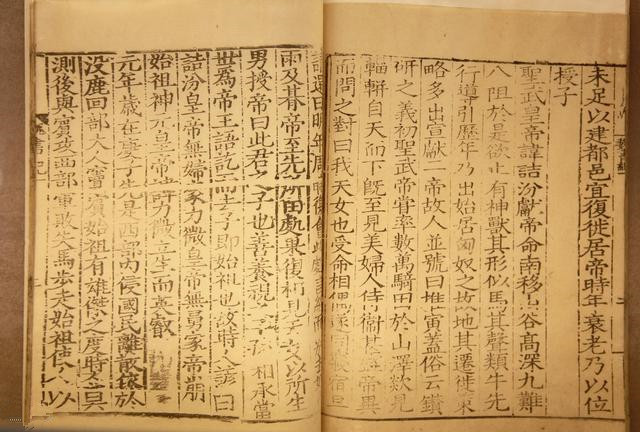 未足以建都邑宜復徙居帝時年衰老乃以位
授子
聖武皇帝諱詰汾獻帝命南移山谷高深九難
八阻於是欲止有神獸其形似馬其聲類牛先
行導引歷年乃出始居匈奴之故地其遷徙策
略多出宣獻二帝故人並號曰推寅蓋俗云鑽
研之義初聖武帝嘗率數萬騎田於山澤欻見
輜軿自天而下既至見美婦人侍衛甚盛帝異
而問之對曰我天女也受命相偶遂同寢宿旦
請還曰明年周時復會此處
雨及朞帝至先所田處果復相見天女以所生
男授帝曰此君之子也善養視之子孫相承當
世爲帝王語訖而去子即始祖也故時人諺曰
詰汾皇帝無婦家力微皇帝無舅家帝崩
始祖神元皇帝諱力微立生而英叡
元年歲在庚子先是西部內侵國民離散依於
没鹿回部大人竇賓始祖有雄傑之度時人莫
測後與賓攻西部軍敗失馬步走始祖使人以
魏書紀